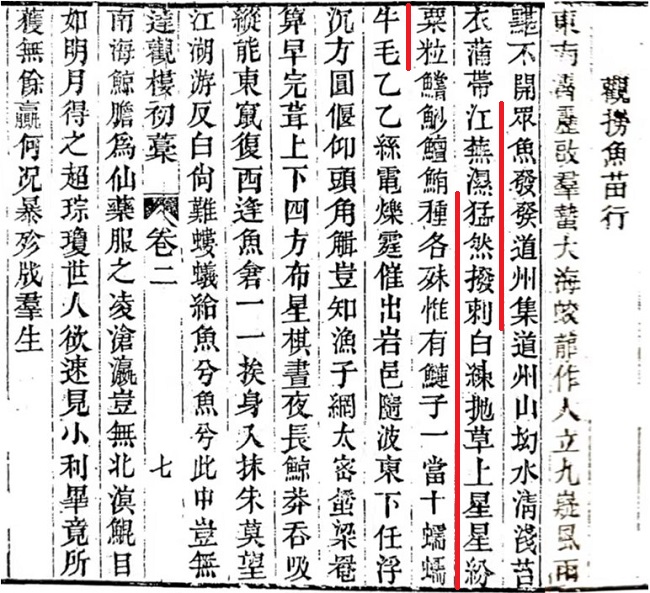 觀撈魚苗行
東靂啟羣蟄大海蛟龍作人立九嶷風雨
不開眾魚發發道州集道州山坳水清淺苔
衣蒲帶江蕪濕猛然撥刺白練拋草上星星紛
粟粒鰭魦鱣鮪種各殊惟有鰱子一當十蠕蠕
牛毛乙乙絲電爍霆催出岩邑隨波東下任浮
沉方圓偃仰頭角豈知漁子網太密梁罨
算早完葺上下四方布星棋晝夜長鯨莽吞吸
縱能東竄復西逢魚倉一一挨身入抹朱莫望
江湖游反白尙難螻蟻給魚兮魚兮此中豈無
達觀樓初藁 卷二 七
南海鯨膽爲仙藥服之凌滄瀛豈無北溟鯤目
如明月得之超琮瓊世人欲速見小利畢竟所
獲無餘贏何况暴殄戕羣生